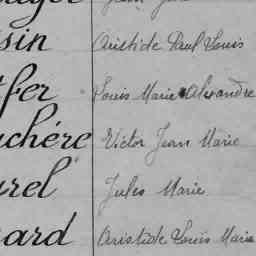 sin Aristide Paul Louis
fer Louis Marie Alexandre
chère Victor Jean Marie
rel Jules Marie
ard Aristide Louis Marie